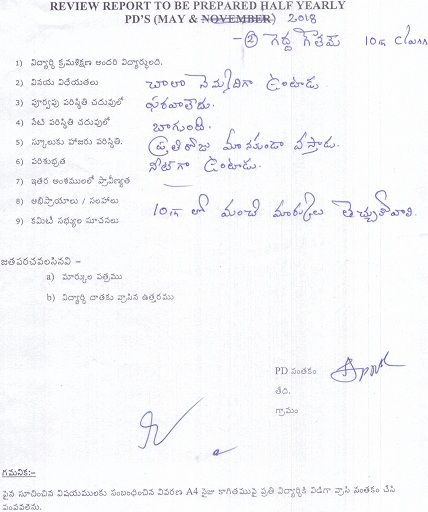 REVIEW REPORT TO BE PREPARED HALF YEARLY
PD'S (MAY & NOVEMBER) 2018
② గెడ్డ గౌతమ్ 10th Class
1) విద్యార్థి క్రమశిక్షణ అందరి విద్యార్థులది.
2) వినయ విధేయతలు చాలా నెమ్మదిగా ఉంటాడు
3) పూర్వపు పరిస్థితి చదువులో ఫరవాలేదు.
4) నేటి పరిస్థితి చదువులో బాగుంది.
5) స్కూలుకు హాజరు పరిస్థితి. ప్రతిరోజు మానకుండా వస్తాడు.
6) పరిశుభ్రత నీట్‌గా ఉంటాడు.
7) ఇతర అంశములలో ప్రావీణ్యత —
8) అభిప్రాయాలు / సలహాలు
9) కమిటీ సభ్యుల సూచనలు 10th లో మంచి మార్కులు తెచ్చుకోవాలి.
జతపరచవలసినవి –
a) మార్కుల పత్రము
b) విద్యార్థి దాతకు వ్రాసిన ఉత్తరము
PD సంతకం
తేది.
గ్రామం
గమనిక:-
పైన సూచించిన విషయములకు సంబంధించిన వివరణ A4 సైజు కాగితముపై ప్రతి విద్యార్థికి విడిగా వ్రాసి సంతకం చేసి
పంపవలెను.